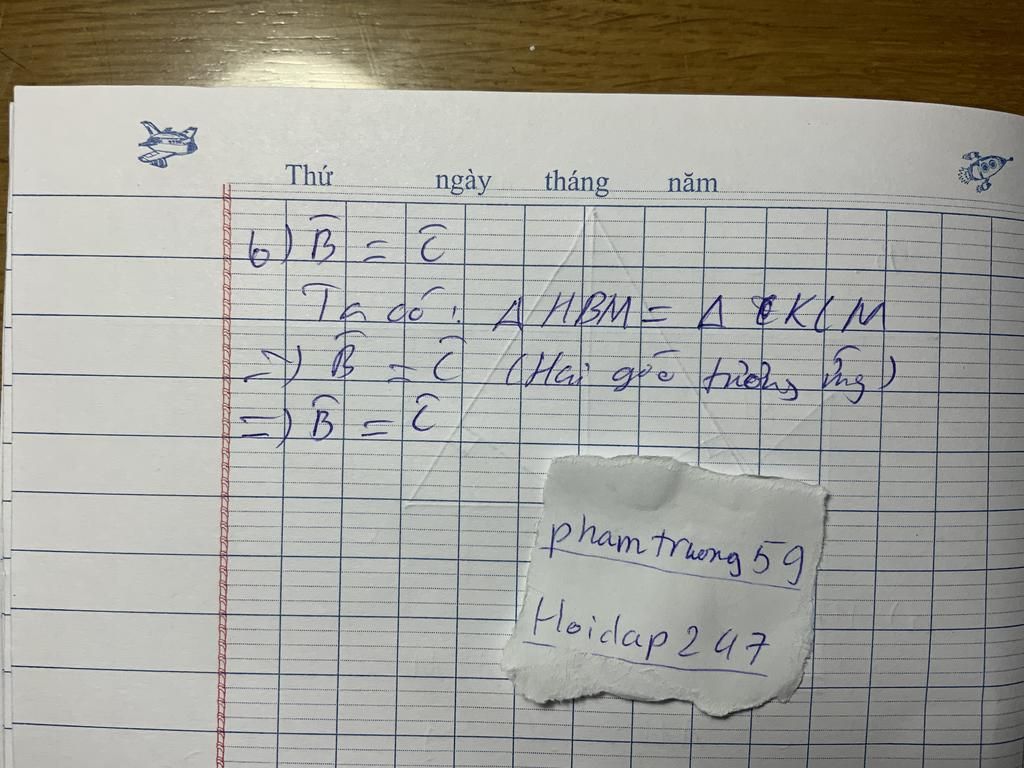 Thứ ngày tháng năm
b) B̂ = Ĉ
Ta có: Δ HBM = Δ KCM
=) B̂ = Ĉ (Hai góc tương ứng)
=) B̂ = Ĉ
phamtruong59
Hoidap247